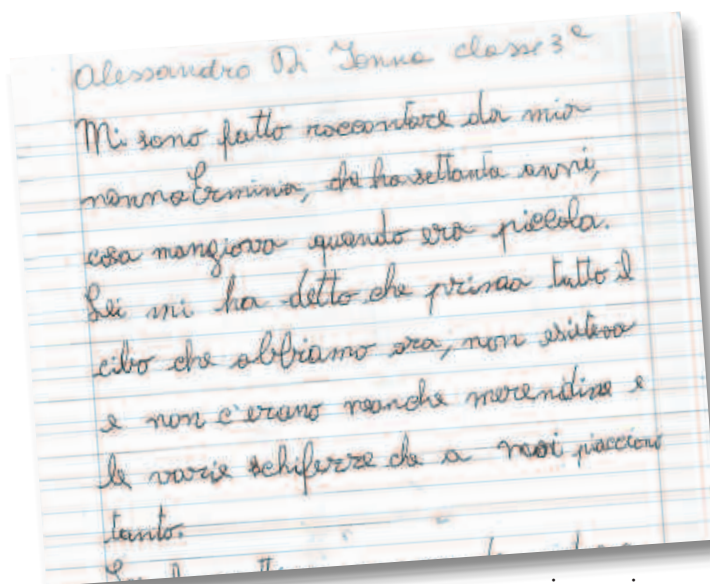 Alessandro Di Ienno classe 3ª
Mi sono fatto raccontare da mia
nonna Erminia, che ha settanta anni,
cosa mangiava quando era piccola.
Lei mi ha detto che prima tutto il
cibo che abbiamo ora, non esisteva
e non c'erano neanche merendine e
le varie schifezze che a noi piacciono
tanto.